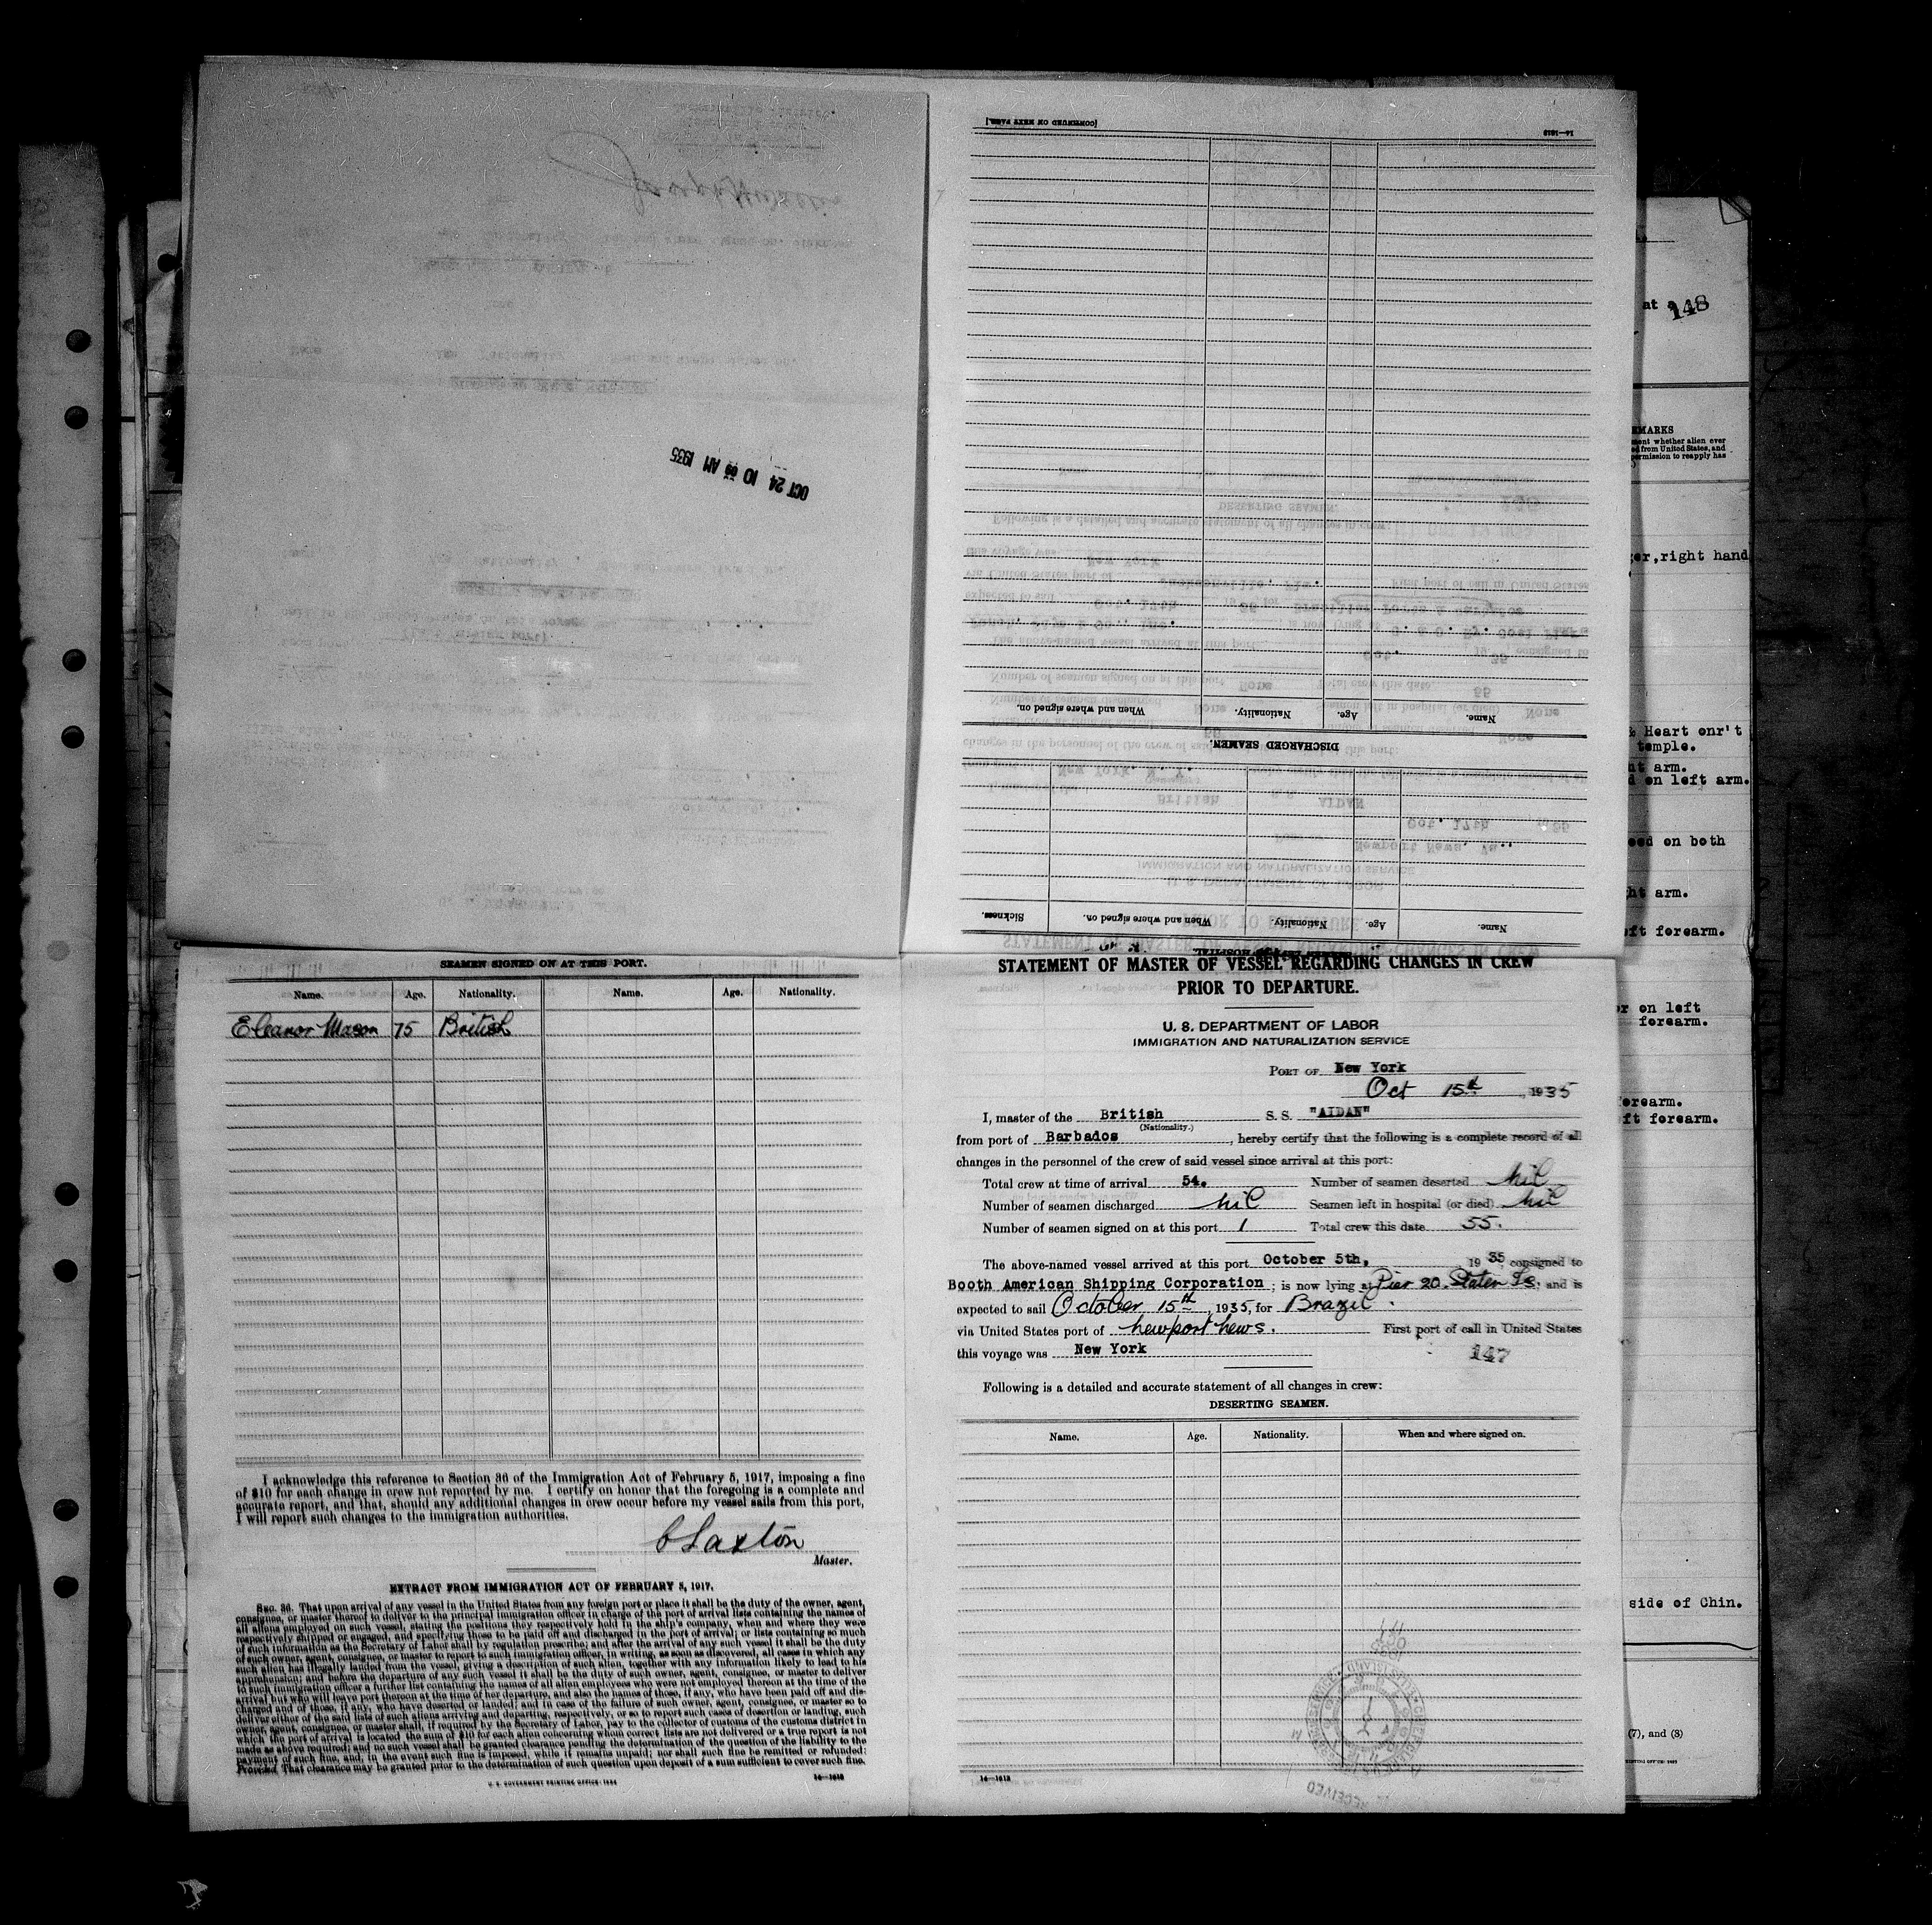 OCT 24 10 AM 1935
[CONTINUED ON NEXT PAGE.]
14—1613
Name. Age. Nationality. When and where signed on.
DISCHARGED SEAMEN.
Name. Age. Nationality. When and where signed on. Sickness.
SEAMEN SIGNED ON AT THIS PORT.
Name. Age. Nationality. Name. Age. Nationality.
Eleanor Mason 75 British
I acknowledge this reference to Section 36 of the Immigration Act of February 5, 1917, imposing a fine
of $10 for each change in crew not reported by me. I certify on honor that the foregoing is a complete and
accurate report, and that, should any additional changes in crew occur before my vessel sails from this port,
I will report such changes to the immigration authorities.
Master.
EXTRACT FROM IMMIGRATION ACT OF FEBRUARY 5, 1917.
SEC. 36. That upon arrival of any vessel in the United States from any foreign port or place it shall be the duty of the owner, agent,
consignee, or master thereof to deliver to the principal immigration officer in charge of the port of arrival lists containing the names of
all aliens employed on such vessel, stating the positions they respectively hold in the ship's company, when and where they were
respectively shipped or engaged, and specifying those to be paid off and discharged in the port of arrival; or lists containing so much
of such information as the Secretary of Labor shall by regulation prescribe; and after the arrival of any such vessel it shall be the duty
of such owner, agent, consignee, or master to report to such immigration officer, in writing, as soon as discovered, all cases in which any
such alien has illegally landed from the vessel, giving a description of such alien, together with any information likely to lead to his
apprehension; and before the departure of any such vessel it shall be the duty of such owner, agent, consignee, or master to deliver
to such immigration officer a further list containing the names of all alien employees who were not employed thereon at the time of the
arrival but who will leave port thereon at the time of her departure, and also the names of those, if any, who have been paid off and dis-
charged and of those, if any, who have deserted or landed; and in case of the failure of such owner, agent, consignee, or master so to
deliver either of the said lists of such aliens arriving and departing, respectively, or so to report such cases of desertion or landing, such
owner, agent, consignee, or master shall, if required by the Secretary of Labor, pay to the collector of customs of the customs district in
which the port of arrival is located the sum of $10 for each alien concerning whom correct lists are not delivered or a true report is not
made as above required; and no such vessel shall be granted clearance pending the determination of the question of the liability to the
payment of such fine, and, in the event such fine is imposed, while it remains unpaid; nor shall such fine be remitted or refunded:
Provided, That clearance may be granted prior to the determination of such question upon deposit of a sum sufficient to cover such fine.
U. S. GOVERNMENT PRINTING OFFICE: 1934 14—1613
STATEMENT OF MASTER OF VESSEL REGARDING CHANGES IN CREW
PRIOR TO DEPARTURE.
U. S. DEPARTMENT OF LABOR
IMMIGRATION AND NATURALIZATION SERVICE
PORT OF New York
Oct 15th, 1935
I, master of the British S. S. "AIDAN"
(Nationality.)
from port of Barbados, hereby certify that the following is a complete record of all
changes in the personnel of the crew of said vessel since arrival at this port:
Total crew at time of arrival 54. Number of seamen deserted nil
Number of seamen discharged nil Seamen left in hospital (or died) nil
Number of seamen signed on at this port 1 Total crew this date 55.
The above-named vessel arrived at this port October 5th, 1935, consigned to
Booth American Shipping Corporation; is now lying at Pier 20. Staten Is; and is
expected to sail October 15th, 1935, for Brazil.
via United States port of Newport News. First port of call in United States
this voyage was New York
147
Following is a detailed and accurate statement of all changes in crew:
DESERTING SEAMEN.
Name. Age. Nationality. When and where signed on.
14—1613
RECEIVED
at
148
EMARKS
ment whether alien ever
ed from United States, and
permission to reapply has
ger, right hand
& Heart onr't
temple.
ht arm.
d on left arm.
eed on both
ht arm.
eft forearm.
or on left
forearm.
orearm.
eft forearm.
side of Chin.
(7), and (8)